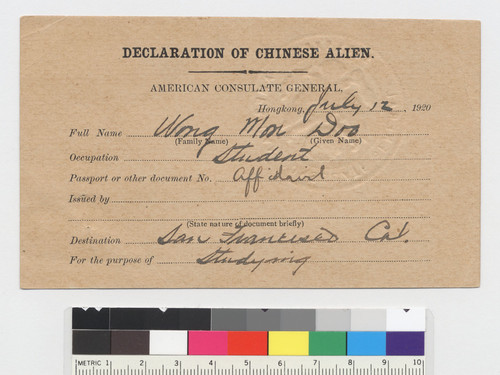 DECLARATION OF CHINESE ALIEN.
AMERICAN CONSULATE GENERAL,
Hongkong, July 12 1920
Full Name Wong Mon Doo
(Family Name) (Given Name)
Occupation Student
Passport or other document No. Affidavit
Issued by
(State nature of document briefly)
Destination San Francisco Cal.
For the purpose of Studying
METRIC 1 2 3 4 5 6 7 8 9 10